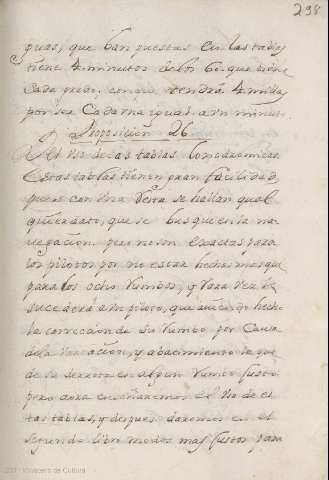 298
guas, que ban puestas en las tablas
tiene 4 minutos de los 60 que tiene
Cada grado, con que tendrá 4 millas
por ser Cada una igual a un minuto.
Disposición 26.
El vso de las tablas
Estas tablas tienen gran facilidad
pues con una Vista se hallan qual
quier dato, que se busque en la na
uegacion. pero no son exactas para
los pilotos por no estar hechas mas que
para los ocho Rumbos, y Rara Vez le
sucederá a un piloto, que auiendo hecho
la correccion de su Rumbo por Causa
de la Variacion, y abatimiento la que
de su derrota en algun Rumbo justo
pero aora enseñaremos el Vso de es
tas tablas, y despues daremos en el
segundo libro modos mas justos para
Ministerio de Cultura